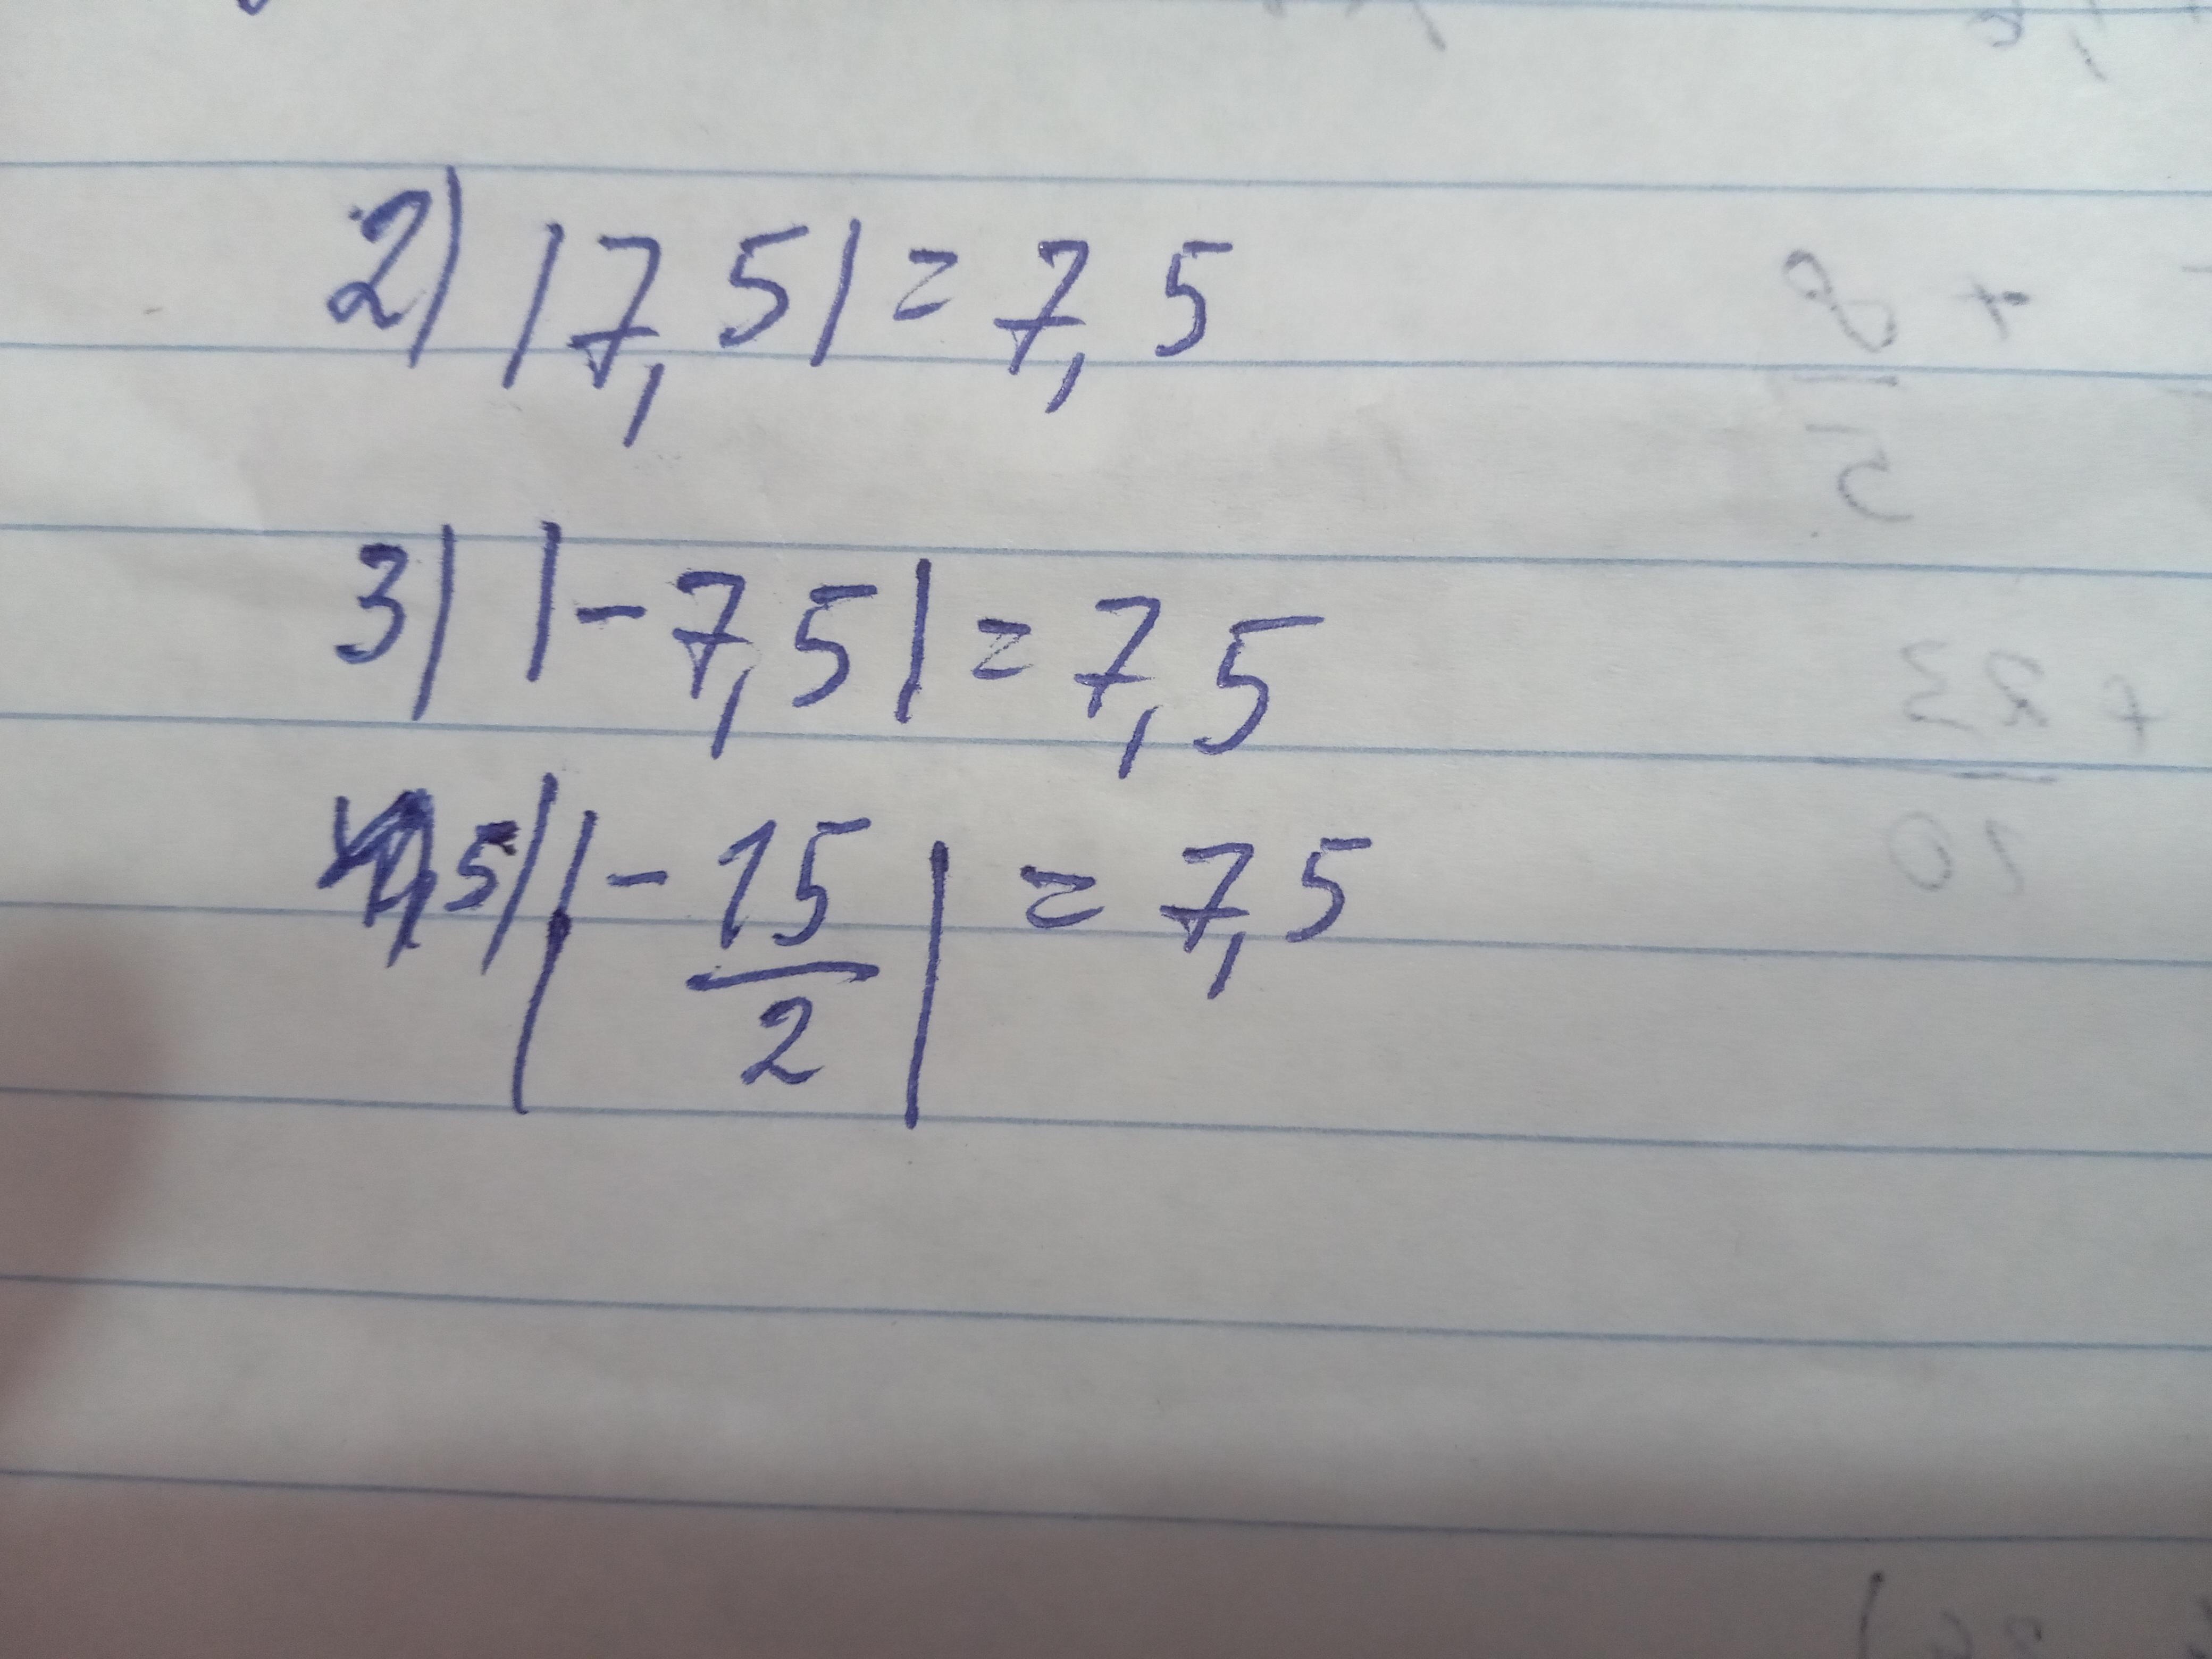 2) |7,5| = 7,5
3) |-7,5| = 7,5
5) |-15/2| = 7,5